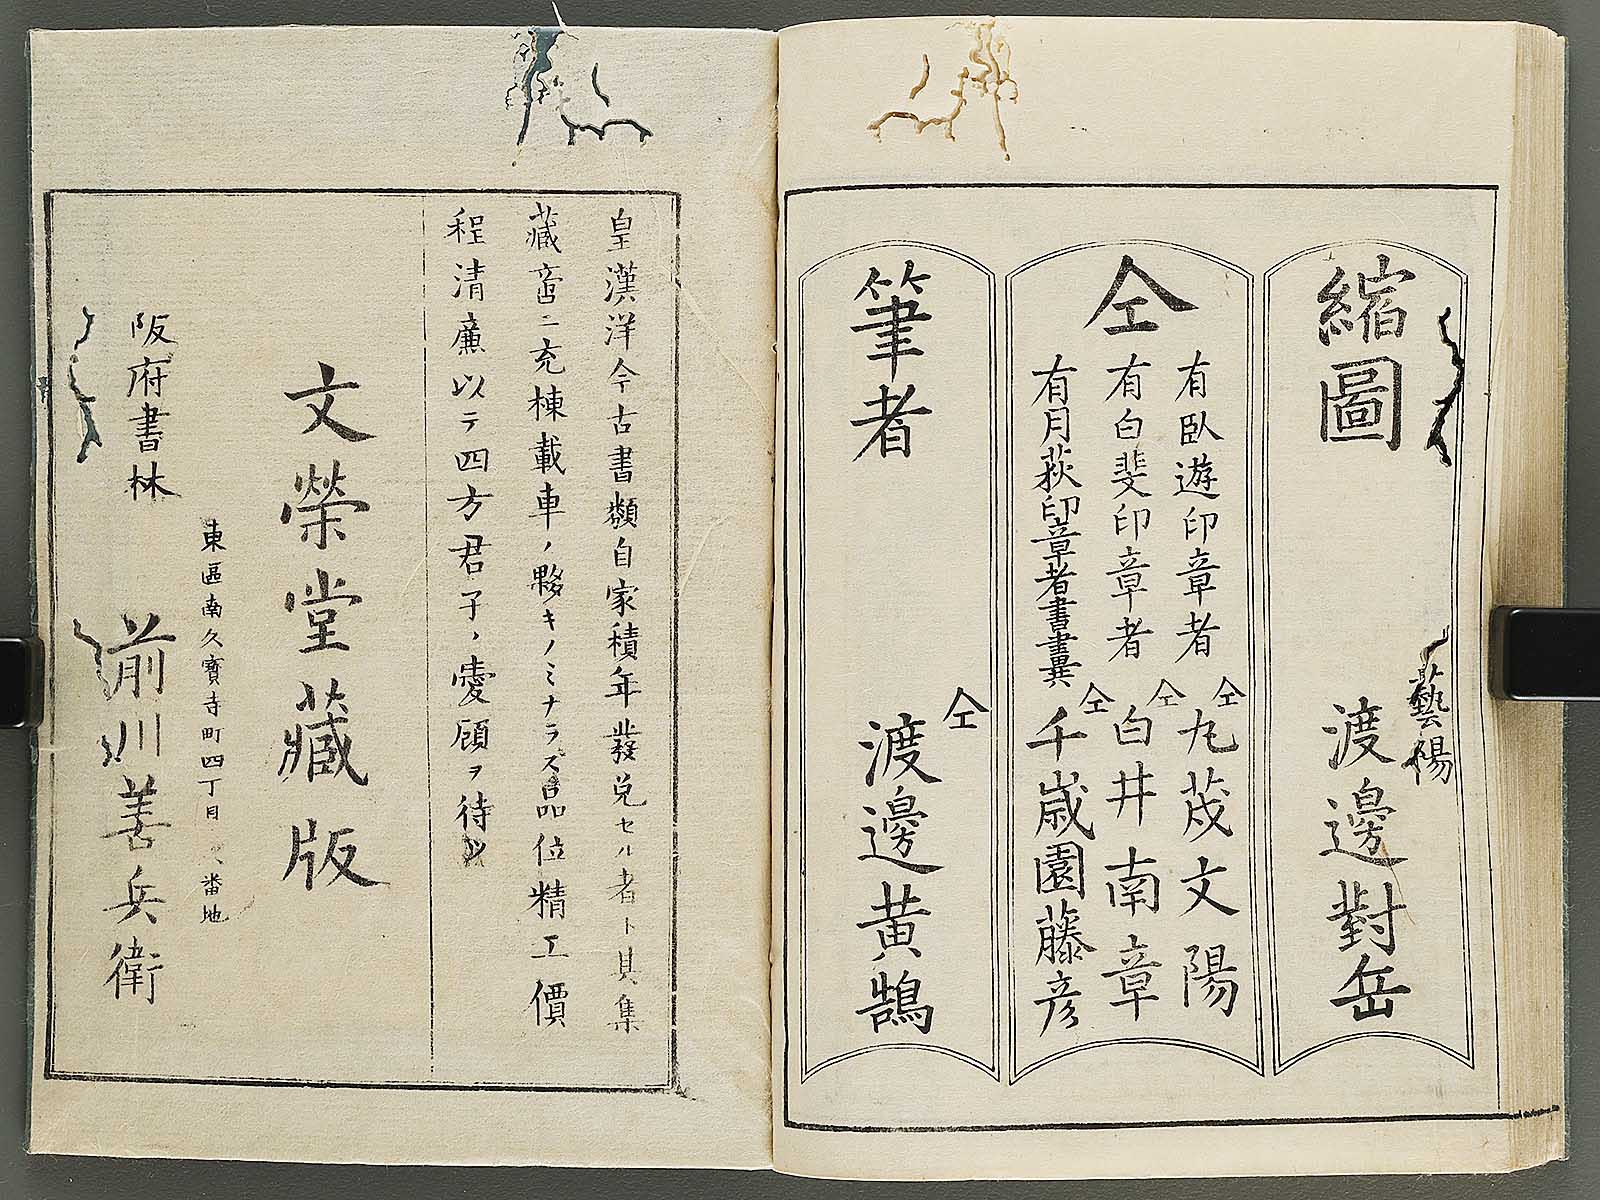 縮圖
藝陽
渡邊對岳
仝
有臥遊印章者
仝
九茂文陽
有白斐印章者
仝
白井南章
有月荻印章者書畫共
仝
千歳園藤彦
筆者
仝
渡邊黄鵠
皇漢洋今古書類自家積年發兌セル者ト具集
藏啻ニ充棟載車ノ夥キノミナラズ品位精工價
程清廉以テ四方君子ノ愛顧ヲ待ツ
文榮堂藏版
東區南久寳寺町四丁目 番地
阪府書林
前川善兵衛